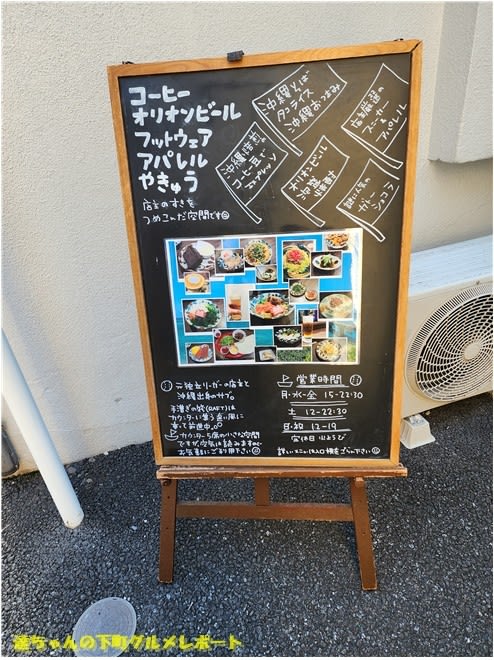 コーヒー
オリオンビール
フットウェア
アパレル
やきゅう
店主のすきを
つめこんだ空間です
沖縄そば
タコライス
沖縄おつまみ
店主厳選の
スニーカー
&
アパレル
沖縄
コーヒー豆で
エスプレッソ
オリオンビール
謎に人気の
ガトー
ショコラ
元独立リーガーの店主と
沖縄出身のサブ。
カウンター5席の小さな空間
ですが、空気は読みますので
お気軽にご利用下さい
営業時間
月・水-金 15-22:30
土 12-22:30
日・祝 12-19
定休日 火ようび
達ちゃんの下町グルメレポート